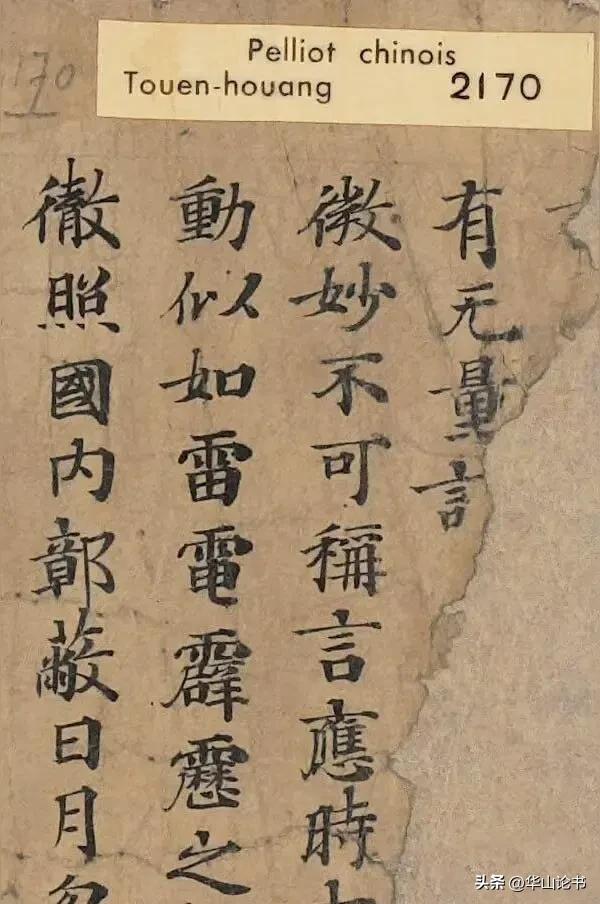 Pelliot chinois
Touen-houang 2170
170
有无量言
微妙不可稱言應時
動似如雷電霹靂之
徹照國内鄣蔽日月
头条 @华山论书